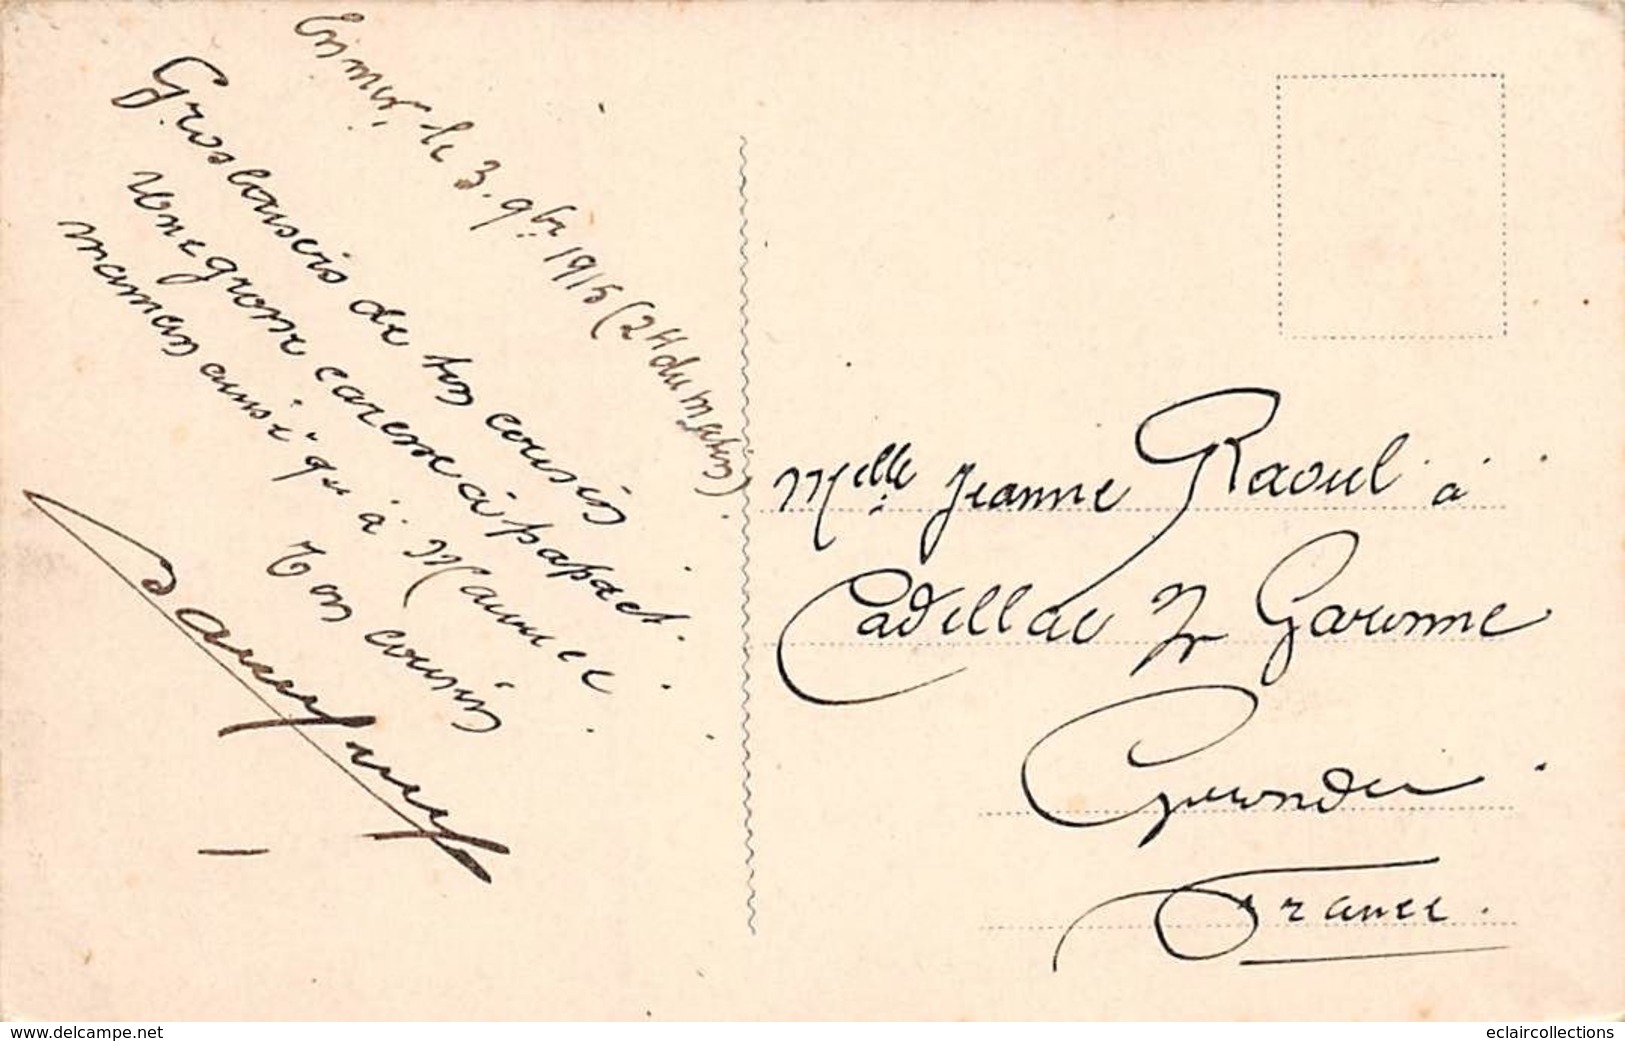 En mer, le 3. 9bre 1915 (2H du matin)
Gros baisers de ton cousin
une grosse caresse à papa et
maman ainsi qu'à
Ton cousin
Melle Jeanne Raoul à
Cadillac s/ Garonne
Gironde
France.
www.delcampe.net
eclaircollections